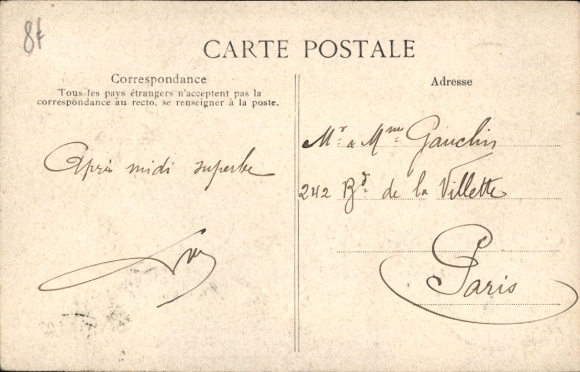 8f
CARTE POSTALE
Correspondance
Tous les pays étrangers n'acceptent pas la
correspondance au recto, se renseigner à la poste.
Après midi superbe
Adresse
Mr & Mme Gauchin
242 Bd de la Villette
Paris